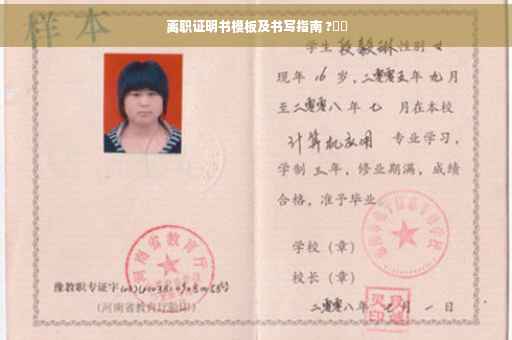 离职证明书模板及书写指南 ?
样本
学生 段毅琳 性别 女
现年 16 岁，二零零五年 九 月
至二零零八年 七 月在本校
计算机应用 专业学习，
学制 三 年，修业期满，成绩
合格，准予毕业
学校（章）
校长（章）
二零零八年 七 月 一 日
河南省教育厅
豫教职专证字
（河南省教育厅验印）